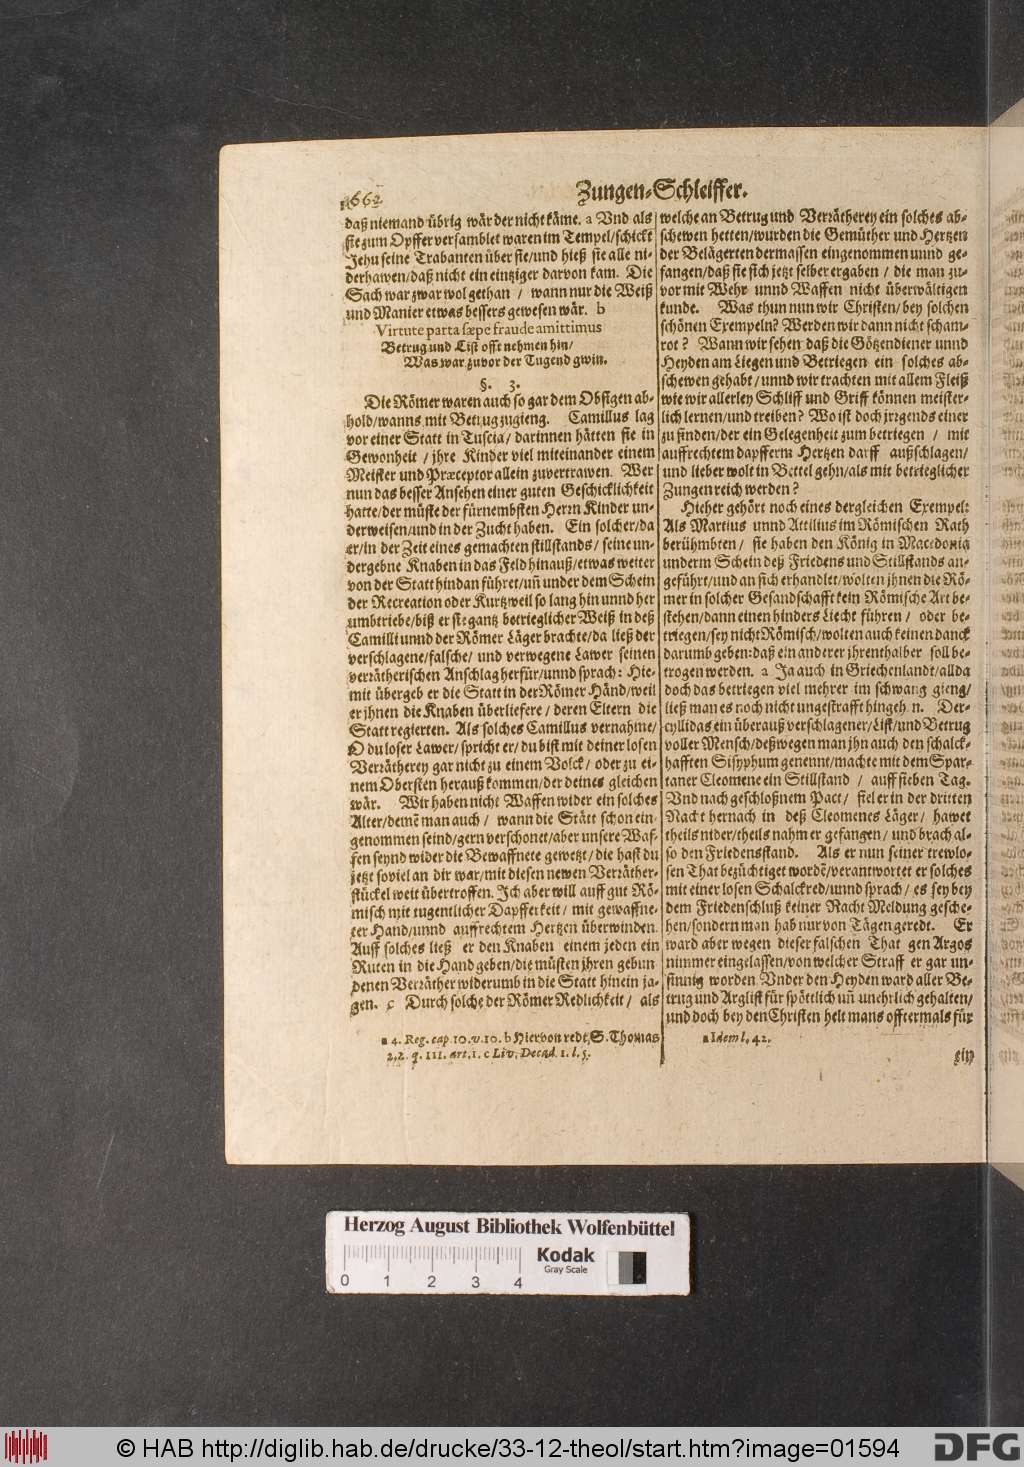 662
Zungen-Schleiffer.
daß niemand übrig wär der nicht käme. a Vnd als
sie zum Opffer versamblet waren im Tempel/schickt
Jehu seine Trabanten über sie/und hieß sie alle ni-
derhawen/daß nicht ein eintziger darvon kam. Die
Sach war zwar wol gethan / wann nur die Weiß
und Manier etwas bessers gewesen wär. b
Virtute parta sæpe fraude amittimus
Betrug und List offt nehmen hin/
Was war zuvor der Tugend gwin.
§. 3.
Die Römer waren auch so gar dem Obsigen ab-
hold/wanns mit Betrug zugieng. Camillus lag
vor einer Statt in Tuscia/ darinnen hätten sie in
Gewonheit / jhre Kinder viel miteinander einem
Meister und Præceptor allein zuvertrawen. Wer
nun das besser Ansehen einer guten Geschicklichkeit
hatte/der müste der fürnembsten Herrn Kinder un-
derweisen/und in der Zucht haben. Ein solcher/da
er/in der Zeit eines gemachten stillstands/ seine un-
dergebne Knaben in das Feld hinauß/etwas weiter
von der Statt hindan führet/uñ under dem Schein
der Recreation oder Kurtzweil so lang hin unnd her
umbtriebe/biß er sie gantz betrieglicher Weiß in deß
Camilli unnd der Römer Läger brachte/da ließ der
verschlagene/falsche/ und verwegene Lawer seinen
verrätherischen Anschlag herfür/unnd sprach: Hie-
mit übergeb er die Statt in der Römer Händ/weil
er jhnen die Knaben überliefere/ deren Eltern die
Statt regierten. Als solches Camillus vernahme/
O du loser Lawer/ spricht er/ du bist mit deiner losen
Verrätherey gar nicht zu einem Volck/ oder zu ei-
nem Obersten herauß kommen/der deines gleichen
wär. Wir haben nicht Waffen wider ein solches
Alter/demē man auch / wann die Stätt schon ein-
genommen seind/gern verschonet/aber unsere Waf-
fen seynd wider die Bewaffnete gewetzt/ die hast du
jetzt soviel an dir war/mit diesen newen Verräther-
stückel weit übertroffen. Ich aber will auff gut Rö-
misch mit tugentlicher Dapfferkeit/ mit gewaffne-
ter Hand/unnd auffrechtem Hertzen überwinden.
Auff solches ließ er den Knaben einem jeden ein
Ruten in die Hand geben/die müsten jhren gebun
denen Verräther widerumb in die Statt hinein ja-
gen. c Durch solche der Römer Redlichkeit/ als
a 4. Reg. cap. 10. v. 10. b Hiervon redt S. Thomas
2.2. q. III. art. 1. c Liv. Decad. 1. l. 5.
welche an Betrug und Verrätherey ein solches ab-
schewen hetten/wurden die Gemüther und Hertzen
der Belägerten dermassen eingenommen unnd ge-
fangen/daß sie sich jetzt selber ergaben / die man zu-
vor mit Wehr unnd Waffen nicht überwältigen
kunde. Was thun nun wir Christen/bey solchen
schönen Exempeln? Werden wir dann nicht scham-
rot? Wann wir sehen daß die Götzendiener unnd
Heyden am Liegen und Betriegen ein solches ab-
schewen gehabt/unnd wir trachten mit allem Fleiß
wie wir allerley Schliff und Griff können meister-
lich lernen/und treiben? Wo ist doch jrgends einer
zu finden/der ein Gelegenheit zum betriegen / mit
auffrechtem dapfferm Hertzen darff außschlagen/
und lieber wolt in Bettel gehn/als mit betrieglicher
Zungen reich werden?
Hieher gehört noch eines dergleichen Exempel:
Als Martius unnd Attilius im Römischen Rath
berühmbten/ sie haben den König in Macedonia
underm Schein deß Friedens und Stillstands an-
geführt/und an sich erhandlet/wolten jhnen die Rö-
mer in solcher Gesandschafft kein Römische Art be-
stehen/dann einen hinders Liecht führen/ oder be-
triegen/sey nicht Römisch/wolten auch keinen danck
darumb geben: daß ein anderer jhrenthalber soll be-
trogen werden. a Ja auch in Griechenlandt/allda
doch das betriegen viel mehrer im schwang gieng/
ließ man es noch nicht ungestrafft hingehn. Der-
cyllidas ein überauß verschlagener/List/und Betrug
voller Mensch/deßwegen man jhn auch den schalck-
hafften Sisyphum genennt/machte mit dem Spar-
taner Cleomene ein Stillstand / auff sieben Tag.
Vnd nach geschloßnem Pact/ fiel er in der dritten
Nacht hernach in deß Cleomenes Läger/ hawet
theils nider/theils nahm er gefangen/ und brach al-
so den Friedensstand. Als er nun seiner trewlo-
sen That bezüchtiget wordē/verantwortet er solches
mit einer losen Schalckred/unnd sprach/ es sey bey
dem Friedenschluß keiner Nacht Meldung gesche-
hen/sondern man hab nur von Tägen geredt. Er
ward aber wegen dieser falschen That gen Argos
nimmer eingelassen/von welcher Straff er gar un-
sinnig worden Vnder den Heyden ward aller Be-
trug und Arglist für spöttlich uñ unehrlich gehalten/
und doch bey den Christen helt mans offtermals für
a Idem l. 42.
ein
Herzog August Bibliothek Wolfenbüttel
0 1 2 3 4
Kodak
Gray Scale
© HAB http://diglib.hab.de/drucke/33-12-theol/start.htm?image=01594
DFG